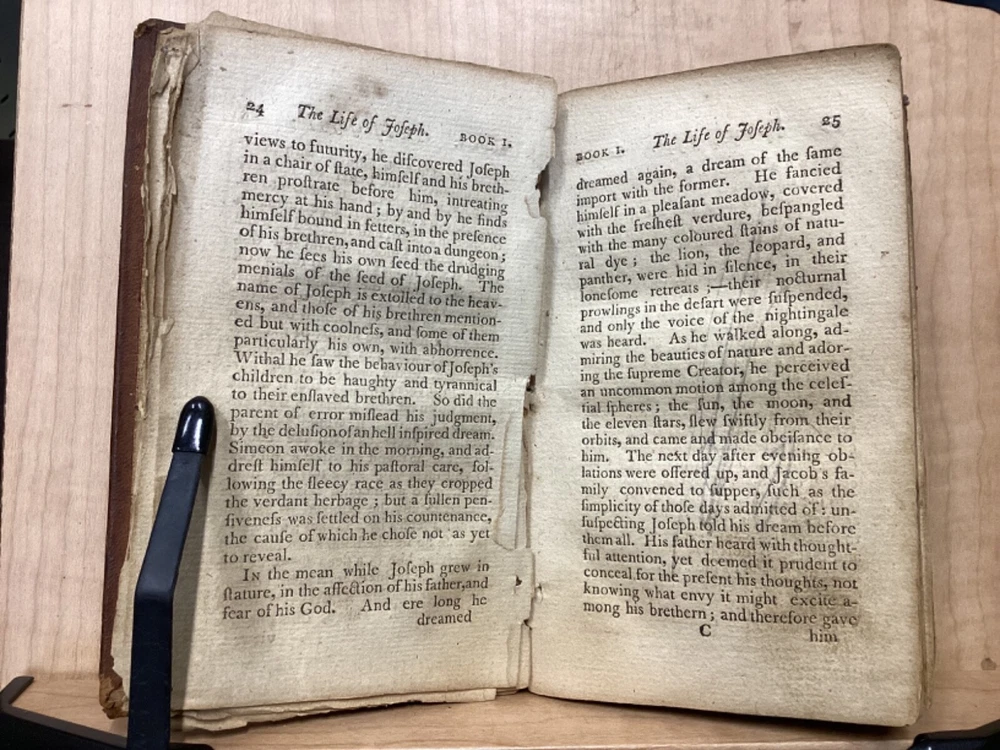 24 The Life of Joſeph. BOOK I.
views to futurity, he diſcovered Joſeph
in a chair of ſtate, himſelf and his breth-
ren proſtrate before him, intreating
mercy at his hand ; by and by he finds
himſelf bound in fetters, in the preſence
of his brethren, and caſt into a dungeon ;
now he ſees his own ſeed the drudging
menials of the ſeed of Joſeph. The
name of Joſeph is extolled to the heav-
ens, and thoſe of his brethren mention-
ed but with coolneſs, and ſome of them
particularly his own, with abhorrence.
Withal he ſaw the behaviour of Joſeph's
children to be haughty and tyrannical
to their enſlaved brethren. So did the
parent of error miſlead his judgment,
by the deluſion of an hell inſpired dream.
Simeon awoke in the morning, and ad-
dreſt himſelf to his paſtoral care, fol-
lowing the fleecy race as they cropped
the verdant herbage ; but a ſullen pen-
ſiveneſs was ſettled on his countenance,
the cauſe of which he choſe not as yet
to reveal.
IN the mean while Joſeph grew in
ſtature, in the affection of his father, and
fear of his God. And ere long he
dreamed
BOOK I. The Life of Joſeph. 25
dreamed again, a dream of the ſame
import with the former. He fancied
himſelf in a pleaſant meadow, covered
with the freſheſt verdure, beſpangled
with the many coloured ſtains of natu-
ral dye ; the lion, the leopard, and
panther, were hid in ſilence, in their
loneſome retreats ;—their nocturnal
prowlings in the deſart were ſuſpended,
and only the voice of the nightingale
was heard. As he walked along, ad-
miring the beauties of nature and ador-
ing the ſupreme Creator, he perceived
an uncommon motion among the celeſ-
tial ſpheres ; the ſun, the moon, and
the eleven ſtars, flew ſwiftly from their
orbits, and came and made obeiſance to
him. The next day after evening ob-
lations were offered up, and Jacob's fa-
mily convened to ſupper, ſuch as the
ſimplicity of thoſe days admitted of : un-
ſuſpecting Joſeph told his dream before
them all. His father heard with thought-
ful attention, yet deemed it prudent to
conceal for the preſent his thoughts, not
knowing what envy it might excite a-
mong his brethern ; and therefore gave
C him